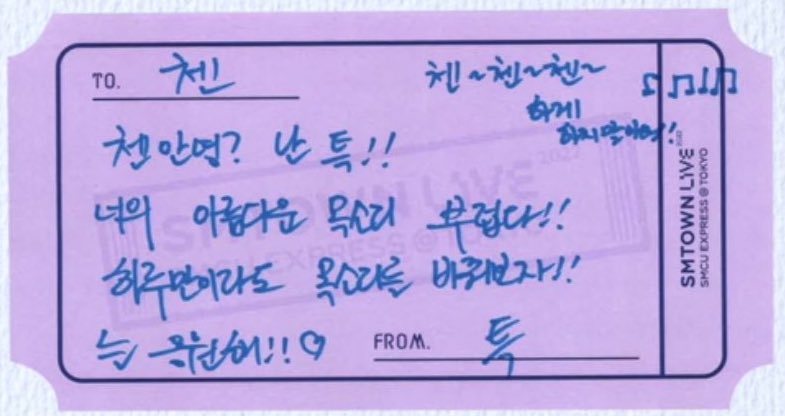 TO. 첸
첸~첸~첸~
하게
첸 안녕? 난 특!!
너의 아름다운 목소리 부럽다!!
하루만이라도 목소리를 바꿔보자!!
늘 응원해!!♡
FROM. 특
SMTOWN LIVE 2022
SMCU EXPRESS @ TOKYO
SMTOWN LIVE 2022
SMCU EXPRESS @ TOKYO